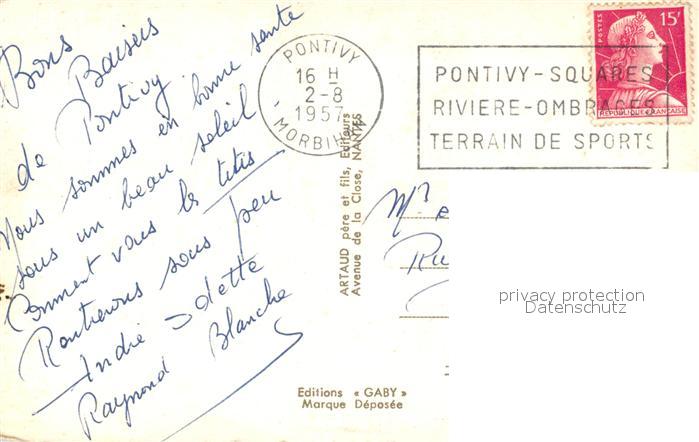 Bons Baisers
de Pontivy
Nous sommes en bonne sante
sous un beau soleil
Comment vous les titis
Rentrerons sous peu
André Odette
Raymond Blanche
PONTIVY
16 H
2-8
1957
MORBIHAN
PONTIVY-SQUARES
RIVIERE-OMBRAGES
TERRAIN DE SPORTS
POSTES
15F
REPUBLIQUE FRANÇAISE
ARTAUD père et fils, Editeurs
Avenue de la Close, NANTES
Mr e
Ru
privacy protection
Datenschutz
Editions « GABY »
Marque Déposée